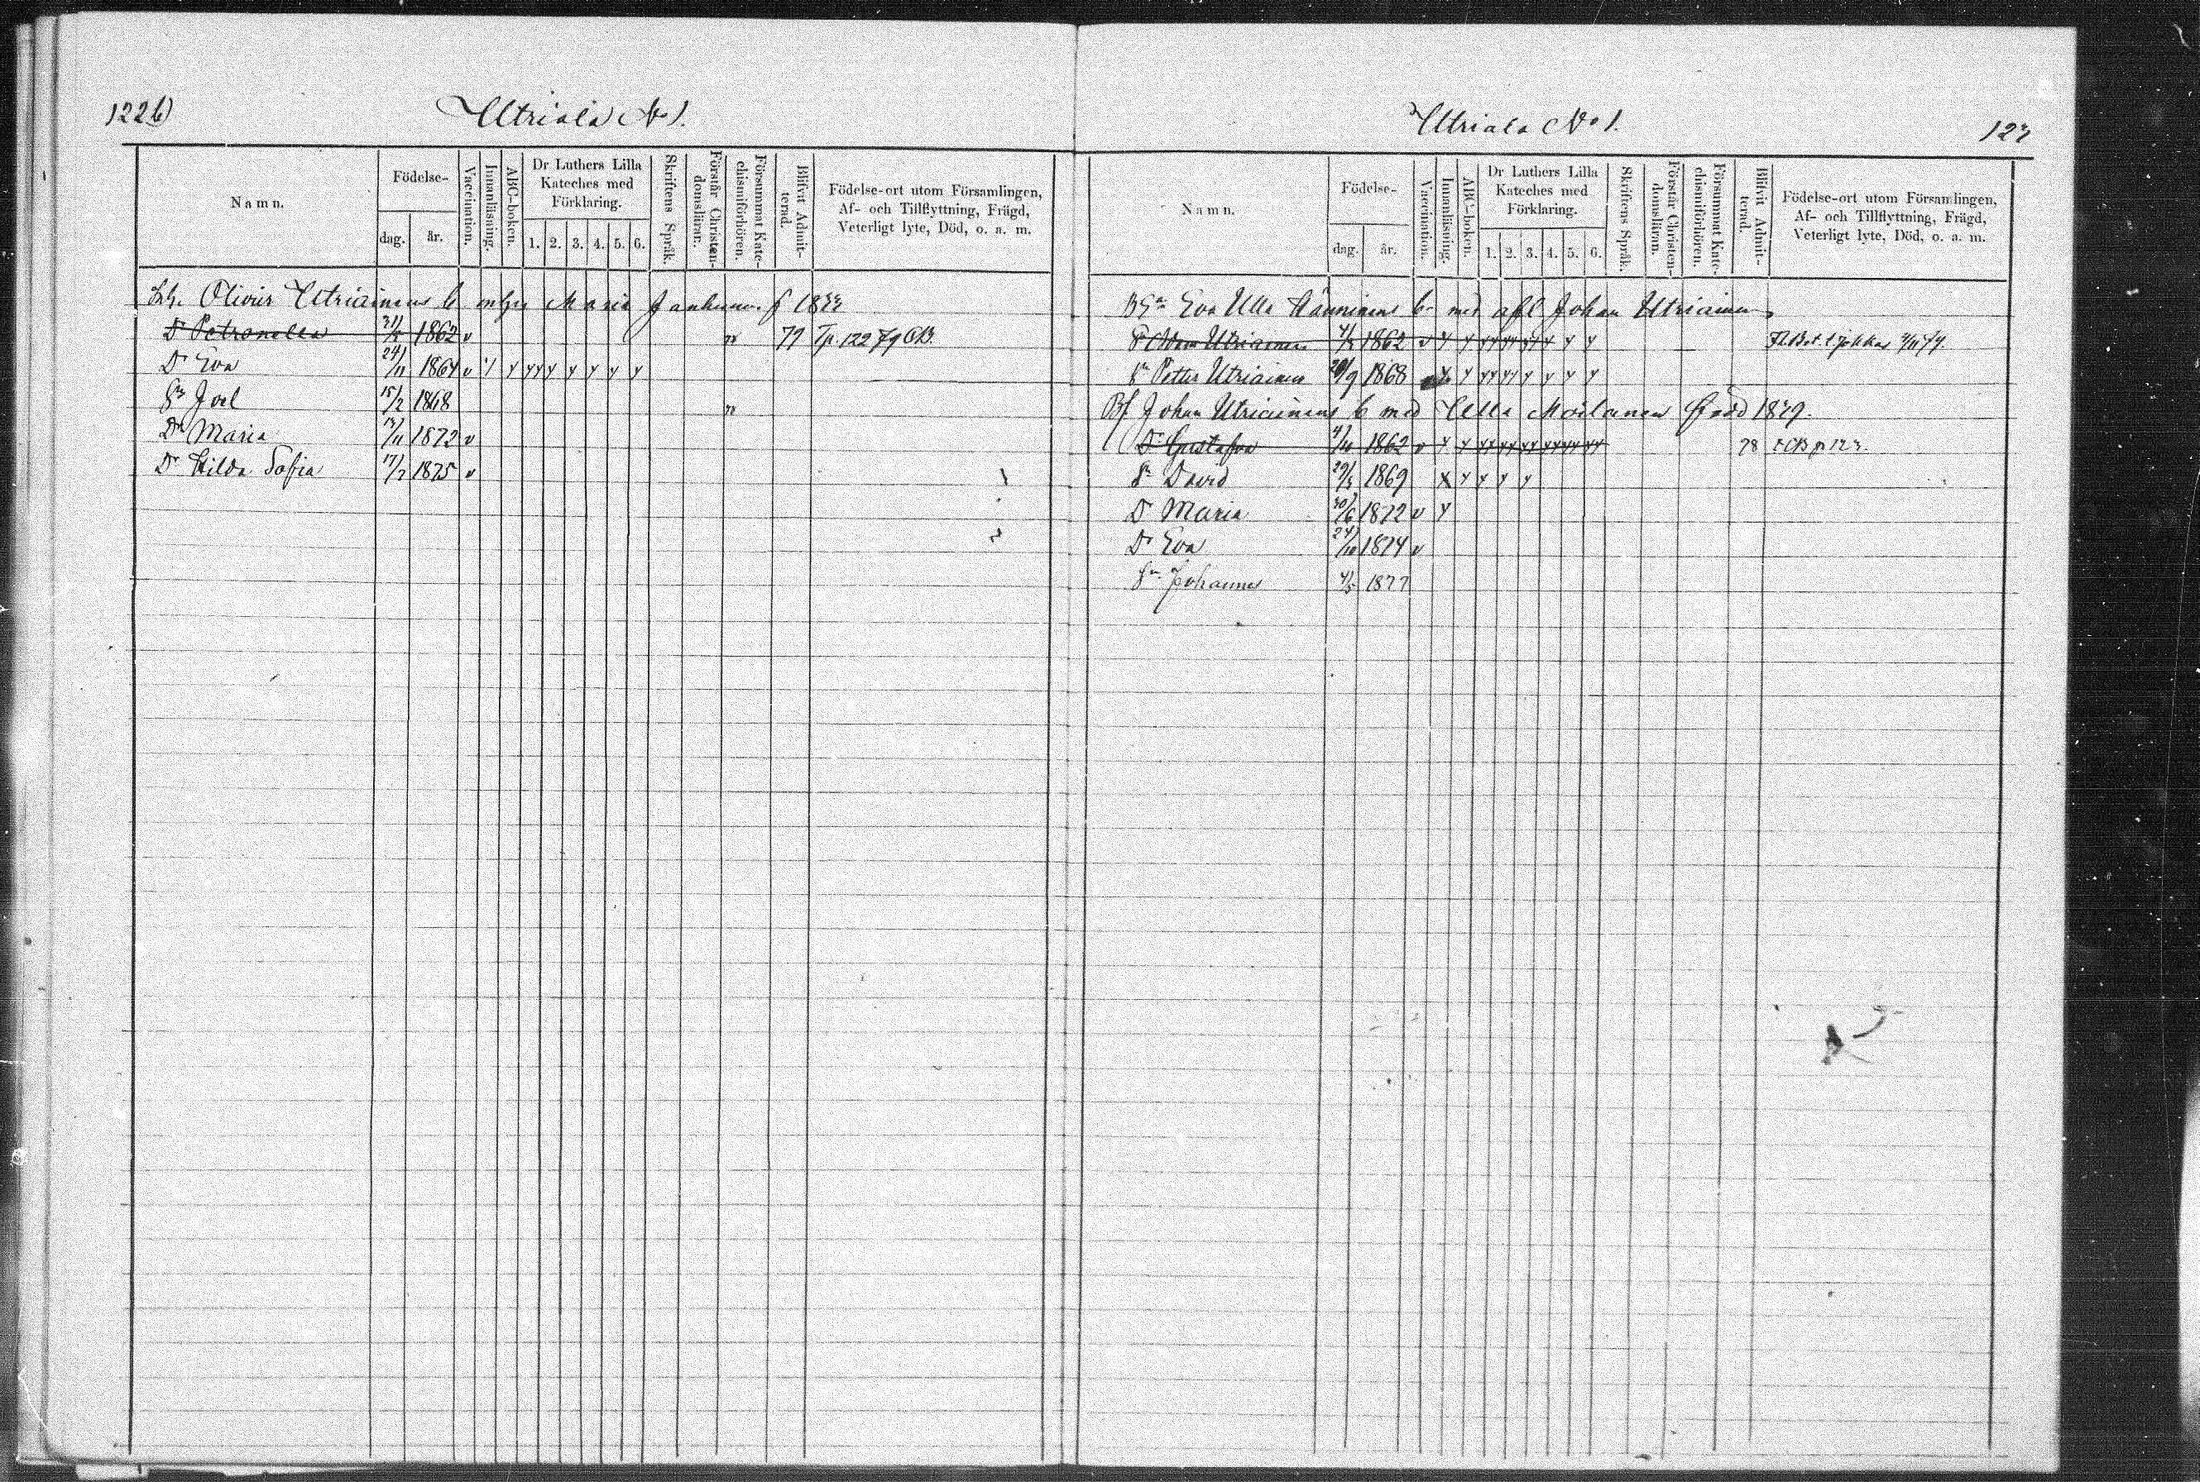 122b)
Utriala No 1.
Namn.
Födelse-
dag.
år.
Vaccination.
Innanläsning.
ABC-boken.
Dr Luthers Lilla
Kateches med
Förklaring.
1. 2. 3. 4. 5. 6.
Skriftens Språk.
Förstår Christen-
domsläran.
Försummat Kate-
chismiförhören.
Blifvit Admit-
terad.
Födelse-ort utom Församlingen,
Af- och Tillflyttning, Frägd,
Veterligt lyte, Död, o. a. m.
Olivier Utriainens b. m hu Maria Janhunen f 1833
Dr Petronella 1862 v n 77 Tp. 122 79 CB.
Dr Eva 24/11 1864 v y y y y y y y y
Sn Joel 15/2 1868 n
Dr Maria 1872 v
Dr Hilda Sofia 17/7 1875 v
Utriala No 1.
123
Namn.
Födelse-
dag.
år.
Vaccination.
Innanläsning.
ABC-boken.
Dr Luthers Lilla
Kateches med
Förklaring.
1. 2. 3. 4. 5. 6.
Skriftens Språk.
Förstår Christen-
domsläran.
Försummat Kate-
chismiförhören.
Blifvit Admit-
terad.
Födelse-ort utom Församlingen,
Af- och Tillflyttning, Frägd,
Veterligt lyte, Död, o. a. m.
Eva Ulla Hänninens b. med afl Johan Utriainen
Adam Utriainen 1862 v y y yy yy yy y y y
Sn Petter Utriainen 1868 y y yy yy y y y y
Johan Utriainens b med Ulla Moilanen född 1839.
Dr Gustafva 1862 v y y yy yy yy yy yy yy 78 CB p 123.
Sn David 29/3 1869 x y y y y
Dr Maria 30/6 1872 v y
Dr Eva 24/10 1874 v
Sn Johannes 4/5 1877